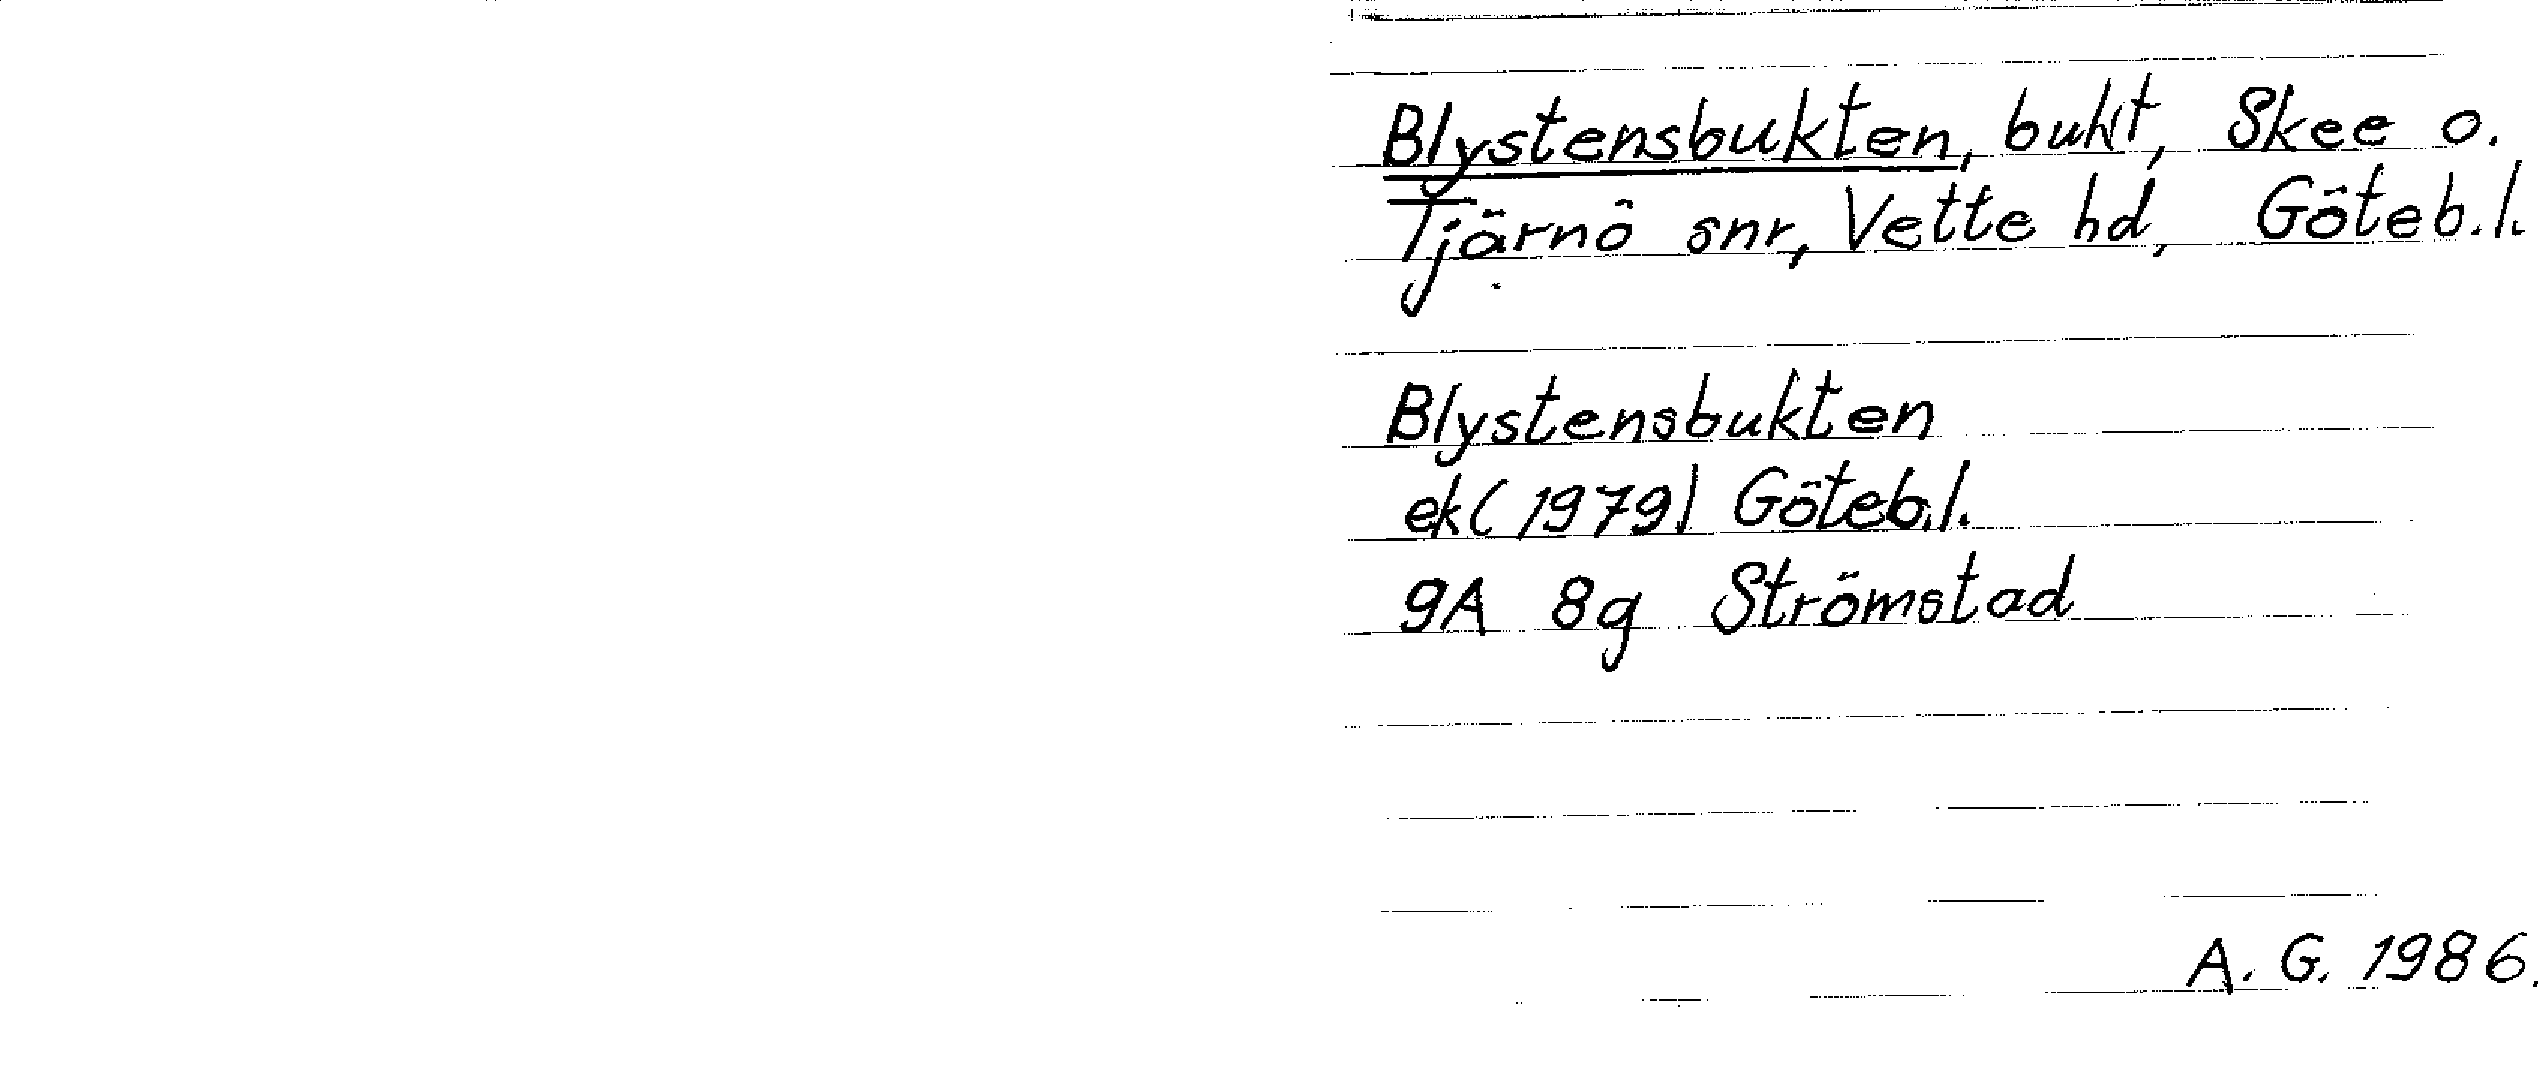 Blystensbukten, bukt, Skee o.
Tjärnö snr, Vette hd, Göteb.l.
Blystensbukten
ek (1979) Göteb.l.
9A 8g Strömstad
A. G. 1986.